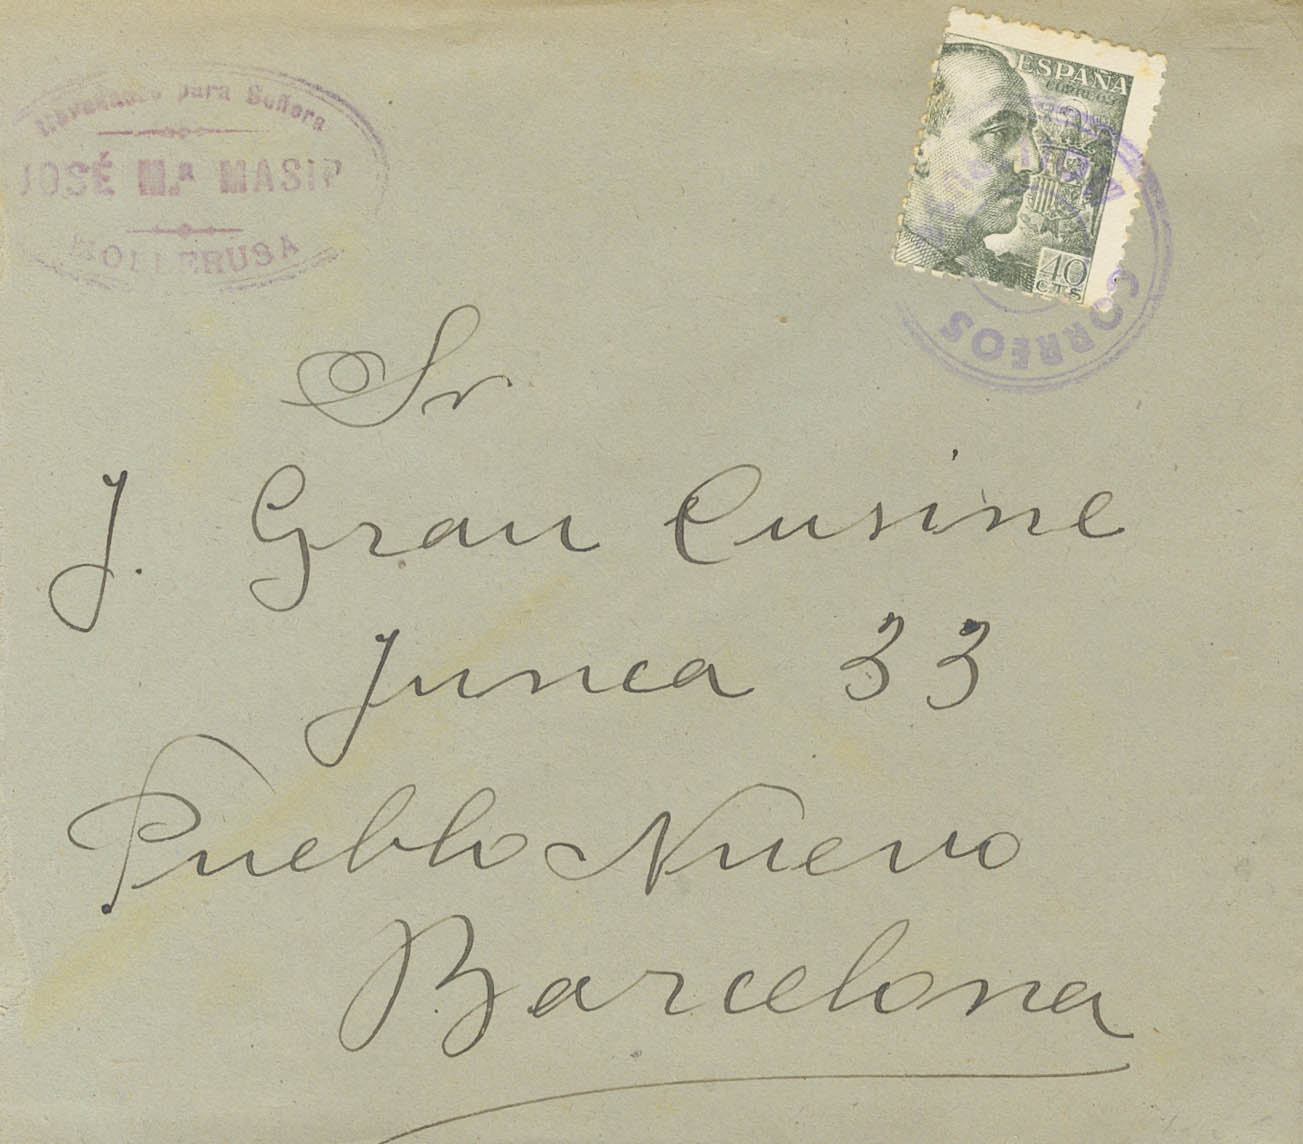 Novedades para Señora
JOSÉ M.ª MASIP
MOLLERUSA
ESPAÑA
CORREOS
40
CTS
CORREOS
Sr
J. Grau Cusine
Junca 33
Pueblo Nuevo
Barcelona